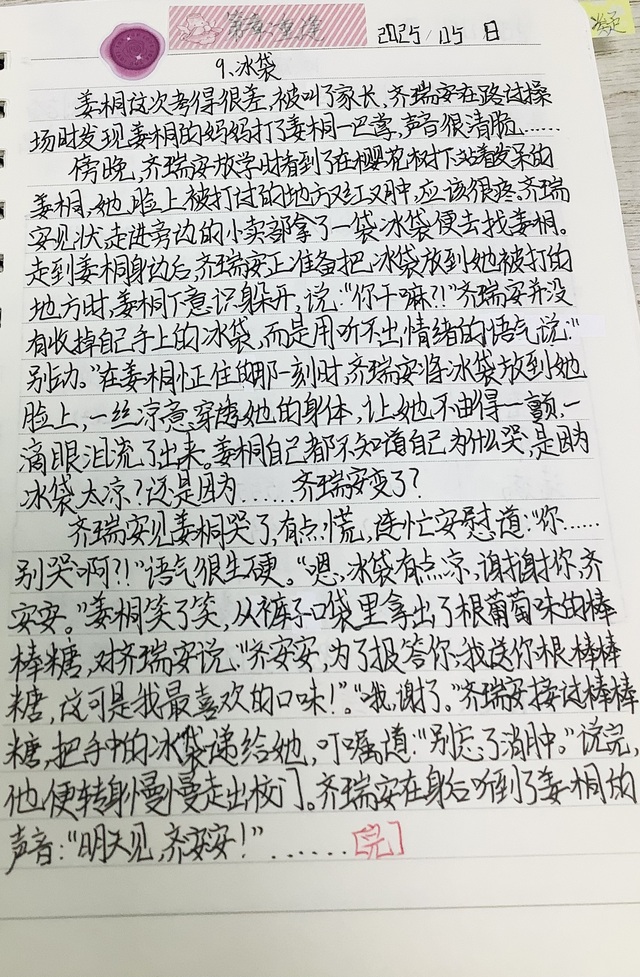 2025/05 日
9、冰袋
姜桐这次考得很差,被叫了家长,齐瑞安在路过操
场时发现姜桐的妈妈打了姜桐一巴掌,声音很清脆……
傍晚,齐瑞安放学时看到了在樱花树下站着发呆的
姜桐,她脸上被打过的地方又红又肿,应该很疼。齐瑞
安见状,走进旁边的小卖部拿了一袋冰袋便去找姜桐。
走到姜桐身边后,齐瑞安正准备把冰袋放到她被打的
地方时,姜桐下意识躲开,说:“你干嘛?!”齐瑞安并没
有收掉自己手上的冰袋,而是用听不出情绪的语气说:“
别动。”在姜桐怔住的那一刻时,齐瑞安将冰袋放到她
脸上,一丝凉意穿透她的身体,让她不由得一颤,一
滴眼泪流了出来。姜桐自己都不知道自己为什么哭,是因为
冰袋太凉?还是因为……齐瑞安变了?
齐瑞安见姜桐哭了,有点慌,连忙安慰道:“你……
别哭啊?!”语气很生硬。“嗯,冰袋有点凉,谢谢你,齐
安安。”姜桐笑了笑,从裤子口袋里拿出了根葡萄味的棒
棒糖,对齐瑞安说:“齐安安,为了报答你,我送你根棒棒
糖,这可是我最喜欢的口味!”“哦,谢了。”齐瑞安接过棒棒
糖,把手中的冰袋递给她,叮嘱道:“别忘了消肿。”说完,
他便转身慢慢走出校门。齐瑞安在身后听到了姜桐的
声音:“明天见,齐安安!”……[完]